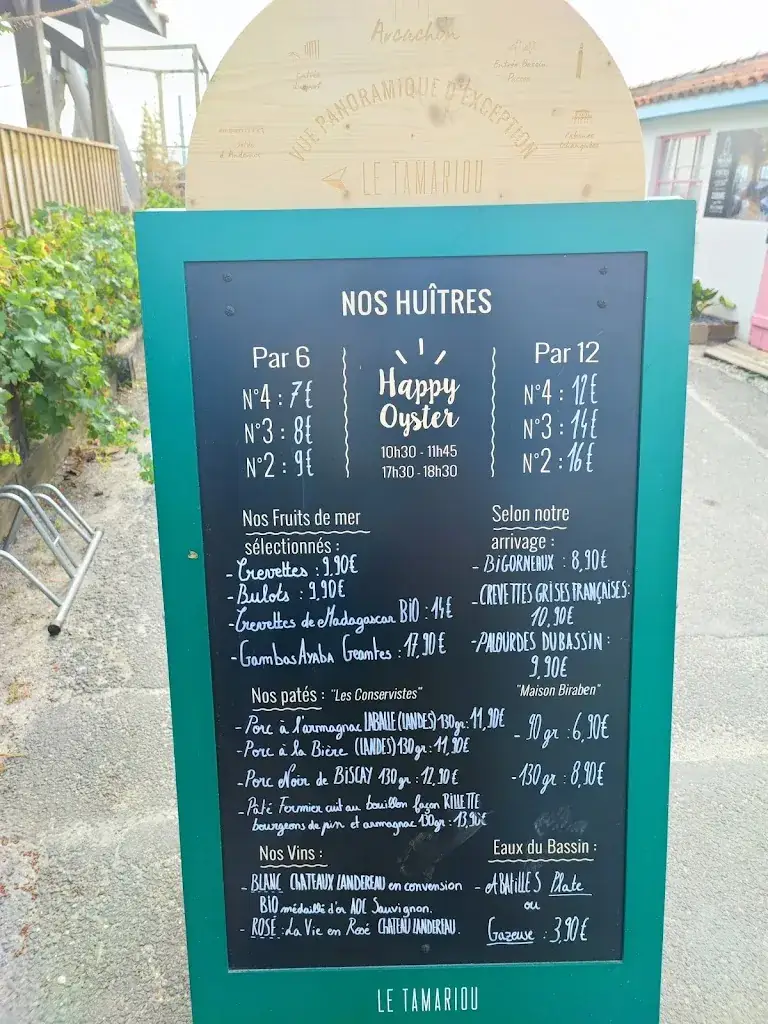 Arcachon
VUE PANORAMIQUE D'EXCEPTION
LE TAMARIOU
NOS HUÎTRES
Par 6
N°4 : 7€
N°3 : 8€
N°2 : 9€
Happy
Oyster
10h30 - 11h45
17h30 - 18h30
Par 12
N°4 : 12€
N°3 : 14€
N°2 : 16€
Nos Fruits de mer
sélectionnés :
- Crevettes : 9,90€
- Bulots : 9,90€
- Crevettes de Madagascar BIO : 14€
- Gambas AYABA Geantes : 17,90€
Selon notre
arrivage :
- BIGORNEAUX : 8,90€
- CREVETTES GRISES FRANÇAISES :
10,90€
- PALOURDES DU BASSIN :
9,90€
Nos patés : "Les Conservistes"
- Porc à l'armagnac LABALLE (LANDES) 130gr : 11,90€
- Porc à la Bière (LANDES) 130gr : 11,90€
- Porc Noir de BISCAY 130gr : 12,90€
- Pâté Fermier cuit au bouillon façon RILLETTE
bourgeons de pin et armagnac 130gr : 13,90€
"Maison Biraben"
- 90gr : 6,90€
- 130gr : 8,90€
Nos Vins :
- BLANC CHATEAUX LANDEREAU en convension
BIO médaillé d'or AOC Sauvignon.
- ROSÉ : La Vie en Rosé CHATEAU LANDEREAU.
Eaux du Bassin :
- ABATILLES Plate
ou
Gazeuse : 3,90€
LE TAMARIOU